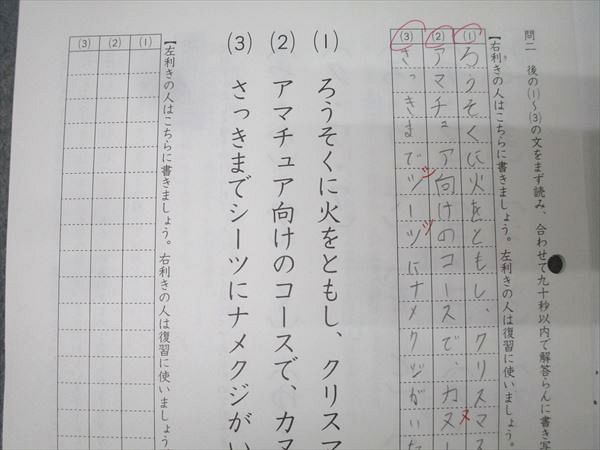 問二 後の(1)～(3)の文をまず読み、合わせて九十秒以内で解答らんに書き写
【右利きの人はこちらに書きましょう。左利きの人は復習に使いましょう
(1) ろうそくに火をともし、クリスマス
(2) アマチュア向けのコースで、カヌー
(3) さっきまでツーツにナメクジがいた
シ
ツ
ヌ
(1) ろうそくに火をともし、クリスマ
(2) アマチュア向けのコースで、カヌ
(3) さっきまでシーツにナメクジがい
【左利きの人はこちらに書きましょう。右利きの人は復習に使いましょう
(1)
(2)
(3)